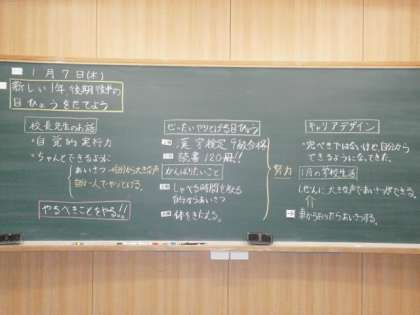 1月7日(木)
新しい1年 後期後半の
目ひょうをたてよう
校長先生のお話
・自覚的実行力
・ちゃんとできるように
あいさつ→自分から大きな声
一人でやりとげる。
やるべきことをやる!!
ぜったいやりとげる目ひょう
漢字検定9級合格
読書120冊!!
がんばりたいこと
しゃべる時間を
自分からあいさつ
体をきたえる。
努力
キャリアデザイン
・完ぺきではないけど、自分から
できるようになってきた。
1月の学校生活
しぜんに大きな声であいさつができる。
車からおりたらあいさつする。